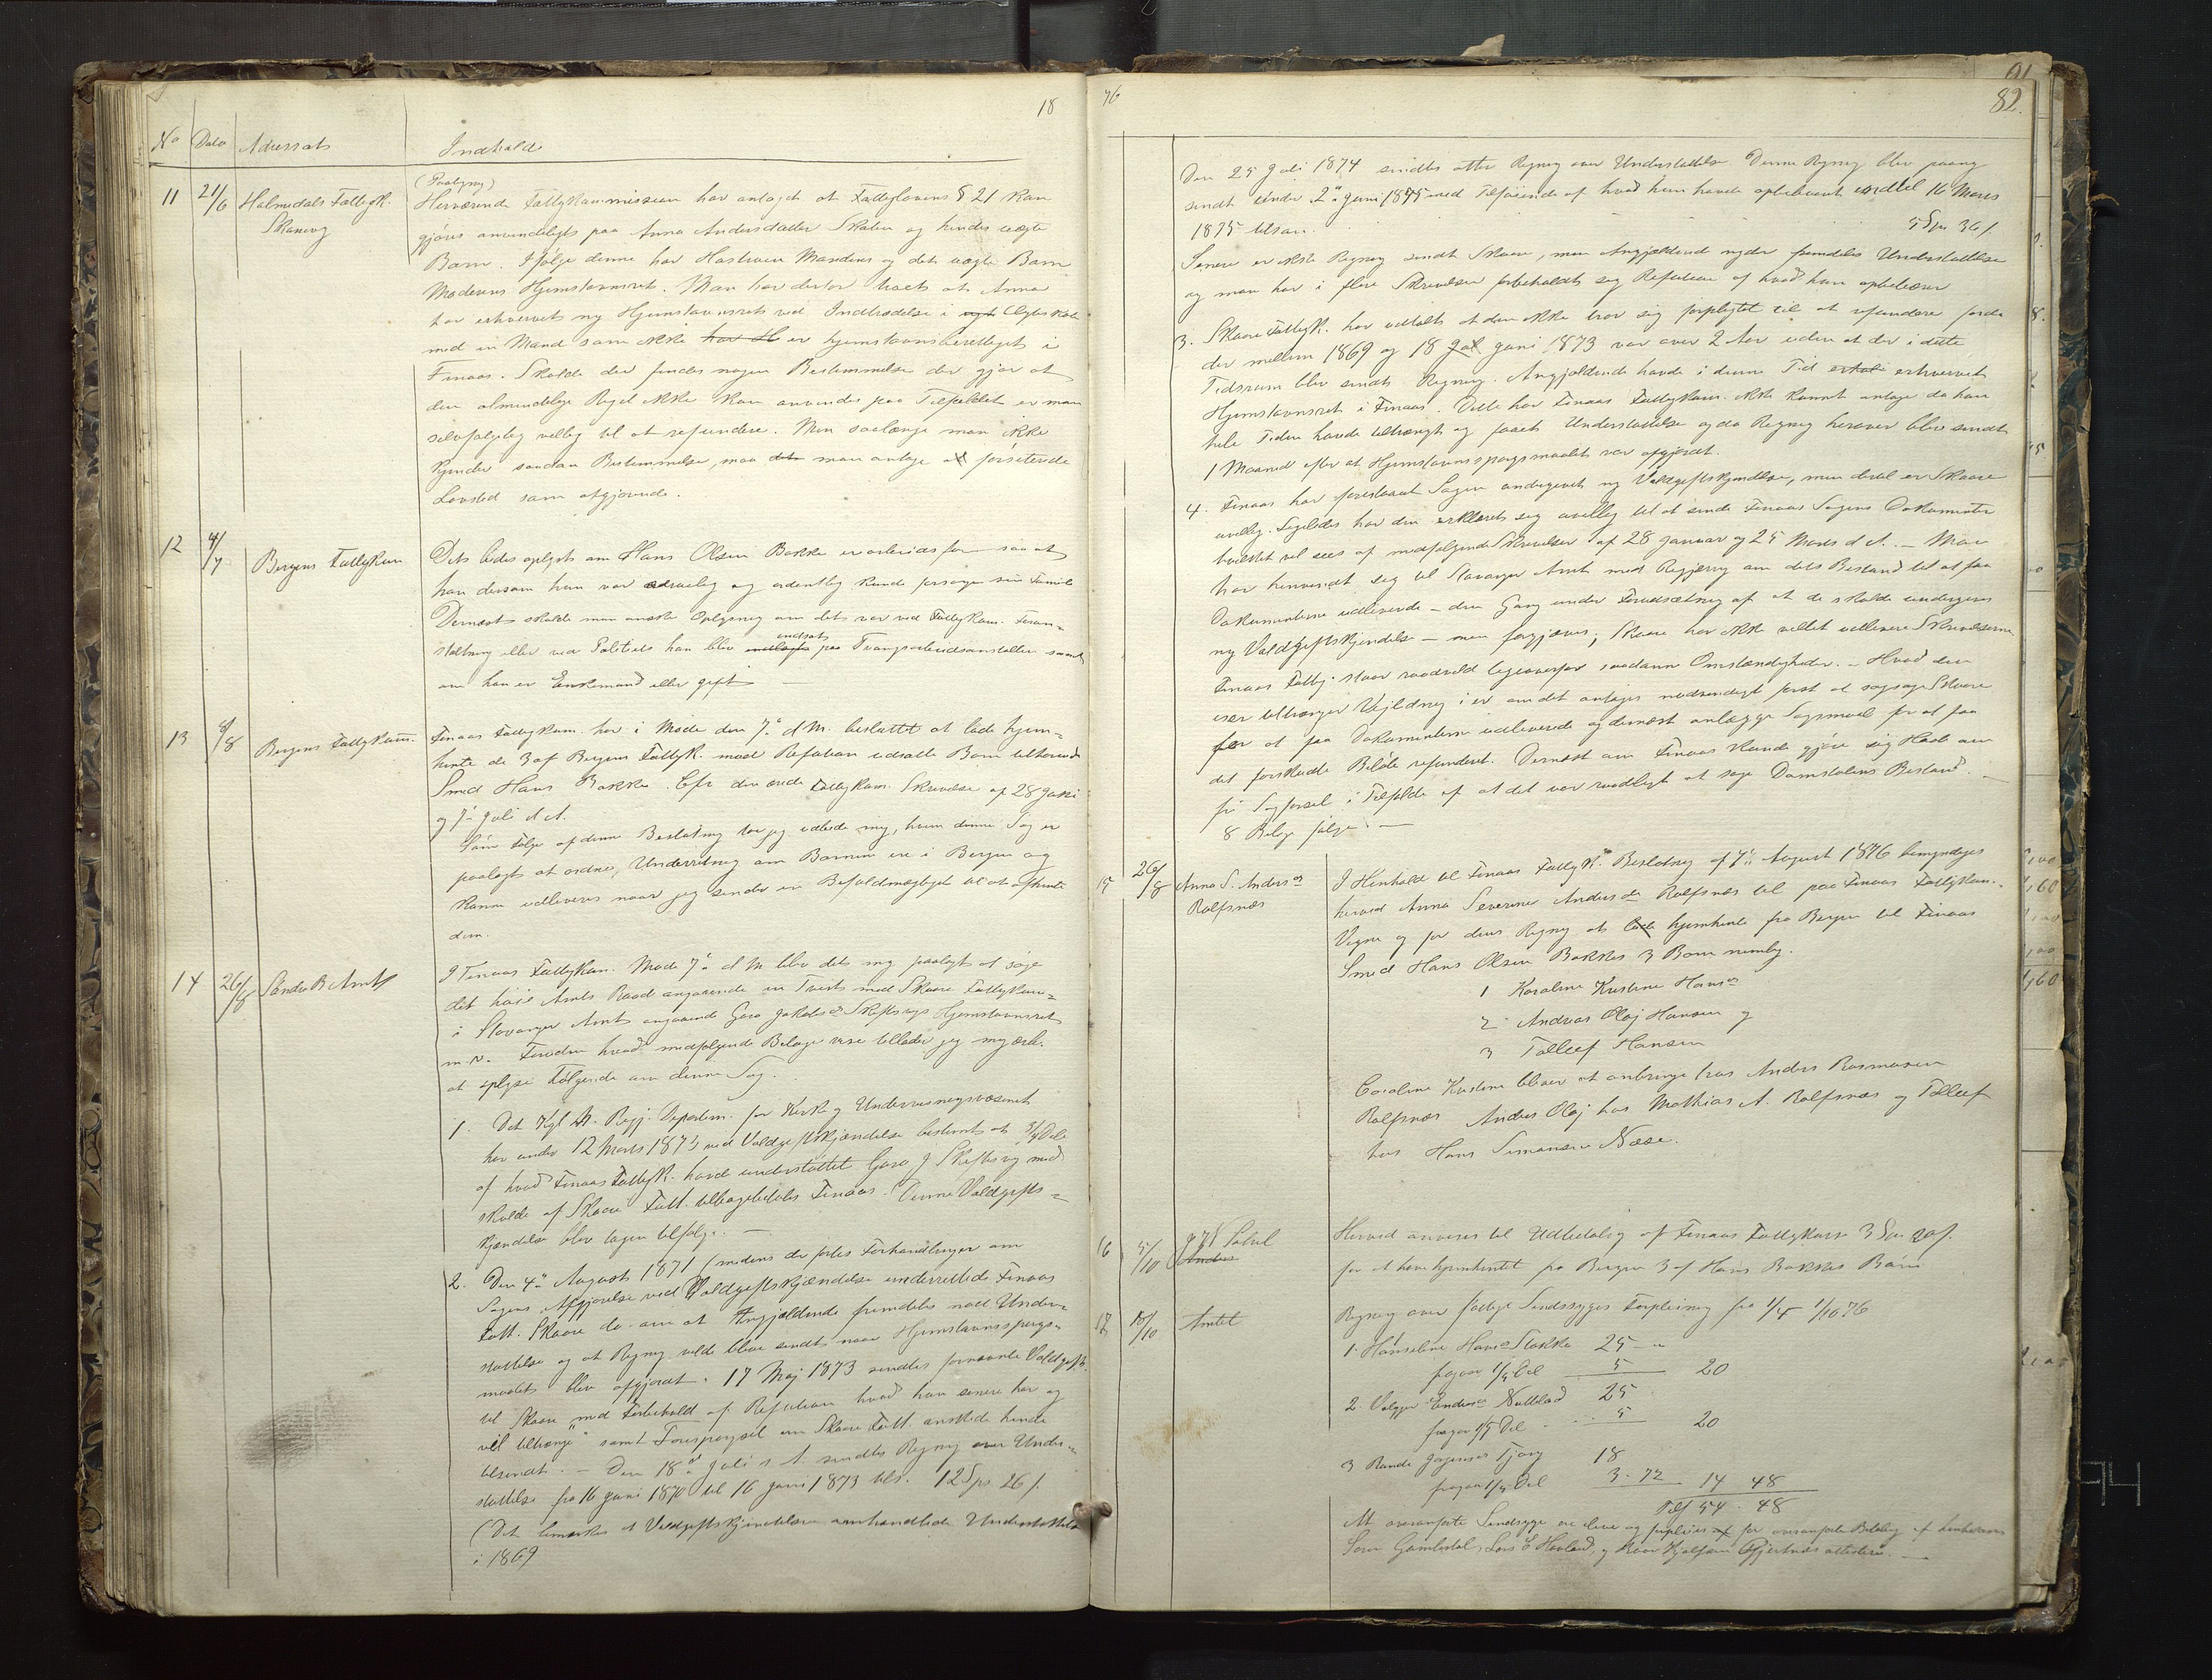 18
No Dato Adressats Indhold
11 21/6 Holmedals Fattigk. Skaanevig
(Paategning)
Herværende Fattigkommission har antaget at Fattiglovens § 21 kan
gjøres anvendeligt paa Anna Andersdatter Skaten og hendes uægte
Barn. Ifølge denne har Hustruen Mandens og det uægte Barn
Moderens Hjemstavnsret. Man har derfor troet at Anna
har erhvervet ny Hjemstavnsret ved Indtrædelse i Ægteskab
med en Mand som ikke er hjemstavnsberettiget i
Finaas. Skulde der findes nogen Bestemmelse der gjør at
den almindelige Regel ikke kan anvendes paa Tilfældet er man
selvfølgelig villig til at refundere. Men saalænge man ikke
kjender saadan Bestemmelse, maa man antage at
Lovsted som afgjørende.
12 4/7 Bergens Fattigkom
Det bedes oplyst om Hans Olsen Bakke er arbeidsfør saa at
han dersom han var ædruelig og ordentlig kunde forsørge sin Familie
Dernæst skulde man ønske Oplysning om det var ved Fattigkom. Foran-
staltning eller ved Politiets han blev indsat paa Tvangsarbeidsanstalten samt
om han er Enkemand eller gift —
13 9/8 Bergens Fattigkom.
Finaas Fattigkom. har i Møde den 7de d M. besluttet at lade hjem-
hente de 3 af Bergens Fattigk. mod Refusion udsatte Børn tilhørende
Smed Hans Bakke. Cfr den ærede Fattigkom. Skrivelse af 28 Juni
og 7de Juli d A.
Som Følge af denne Beslutning tør jeg udbede mig, hvem denne Sag er
paalagt at ordne, Underretning om Børnene ere i Bergen og
kunne udleveres naar jeg sender en Befuldmægtiget til at afhente
dem.
14 26/8 Søndre B Amt
I Finaas Fattigkom. Møde 7de d M blev det mig paalagt at søge
det høie Amts Raad angaaende en Tvist med Skaare Fattigkom-
i Stavanger Amt angaaende Guro Jakobsdr Skeftsvigs Hjemstavnsret
m. v. Foruden hvad medfølgende Bilage vise tillader jeg mig ærb.
at oplyse Følgende om denne Sag.
1. Det Kgl N. Regj. Departem. for Kirke og Undervisningsvæsenet
har under 12 Marts 1873 ved Voldgiftskjendelse bestemt at 3/4 Dele
af hvad Finaas Fattigk. havde understøttet Guro J Skeftsvig med
skulde af Skaare Fatt. tilbagebetales Finaas. Denne Voldgifts-
kjendelse blev tagen tilfølge. —
2. Den 4de August 1871 (medens der førtes Forhandlinger om
Sagens Afgjørelse ved Voldgiftskjændelse underrettede Finaas
Fatt. Skaare do. om at Angjældende fremdeles nød Under-
støttelse og at Regning vilde blive sendt naar Hjemstavnsspørgs-
maalet blev afgjordt. 17 Maj 1873 sendtes fornævnte Voldgiftsk.
til Skaare „med Forbehold af Refusion hvad hun senere har og
vil tiltrænge" samt Forespørgsel om Skaare Fatt. ønskede hende
tilsendt. — Den 18de Juli s A. sendtes Regning over Under-
støttelse fra 16 Juni 1870 til 16 Juni 1873 tils. 12 Spr 26 s.
(Det bemærkes at Voldgiftskjendelsen omhandlede Understøttelse
i 1869
76
82.
Den 25 Juli 1874 sendtes atter Regning over Understøttelse Denne Regning blev paany
sendt under 2den Juni 1875 med Tilføiende af hvad hun havde oppebaaret indtil 16 Marts
1875 tilsam. 5 Spr 36 s.
Senere er ikke Regning sendt Skaare, men Angjældende nyder fremdeles Understøttelse
og man har i flere Skrivelser forbeholdt sig Refusion af hvad hun oppebærer
3. Skaare Fattigk. har udtalt at den ikke tror sig forpligtet til at refundere fordi
der mellem 1869 og 18 Juni 1873 var over 2 Aar uden at der i dette
Tidsrum blev sendt Regning. Angjældende havde i denne Tid erhvervet
Hjemstavnsret i Finaas. Dette har Finaas Fattigkom. ikke kunnet antage da hun
hele Tiden havde tiltrængt og faaet Understøttelse og da Regning herover blev sendt
1 Maaned efter at Hjemstavnsspørgsmaalet var afgjordt.
4. Finaas har foreslaaet Sagen undergivet ny Voldgiftskjendelse, men dertil er Skaare
uvillig. Ligeledes har den erklæret sig uvillig til at sende Finaas Sagens Dokumenter
hvilket vil sees af medfølgende Skrivelser af 28 Januar og 25 Marts d A. — Man
har henvendt sig til Stavanger Amt med Begjæring om dets Bistand til at faa
Dokumenterne udleverede — den Gang under Forudsætning af at de skulde undergives
ny Voldgiftskjendelse — men forgjæves; Skaare har ikke villet udlevere Skrivelserne
Finaas Fattig. staar raadvild ligeoverfor saadanne Omstændigheder. — Hvad den
især tiltrænger Vejledning i er om det antages nødvendigt først at sagsøge Skaare
for at faa Dokumenterne udleverede og dernæst anlægge Sagsmaal for at faa
det forskudte Beløb refunderet. Dernæst om Finaas kunde gjøre sig Haab om
fri Sagførsel i Tilfælde af at det var raadligt at søge Domstolens Bistand. —
8 Bilage følge. —
15 26/8 Anna S. Andersdr Rolfsnæs
I Henhold til Finaas Fattigk's Beslutning af 7de August 1876 bemyndiges
herved Anna Severine Andersdr Rolfsnæs til paa Finaas Fattigkom.
Vegne og for dens Regning at hjemhente fra Bergen til Finaas
Smed Hans Olsen Bakkes 3 Børn nemlig.
1 Karoline Kristine Hansdr
2 Andreas Olaj Hansen og
3 Tolleef Hansen
Caroline Kristine bliver at anbringe hos Anders Rasmusen
Rolfsnæs Andreas Olaj hos Mathias A. Rolfsnæs og Tolleef
hos Hans Simonsen Næse.
16 5/10
Herved anvises til Udbetaling af Finaas Fattigkasse 3 Spr 20 s.
for at have hjemhentet fra Bergen 3 af Hans Bakkes Børn
17 10/10 Amtet
Regning over fattige Sindssyges Forpleining fra 1/4 1/10 76
1. Hanseline Hansdr Stokke 25 — "
fragaar 1/5 Del 5 20
2. Endresdr 25
fragaar 1/5 Del 5 20
3 Rande 18
fragaar 1/5 Del 3. 72 14 48
Tils 54. 48
At ovenanførte Sindssyge ere i live og forpleies for ovenanførte Betaling af henholdsvis